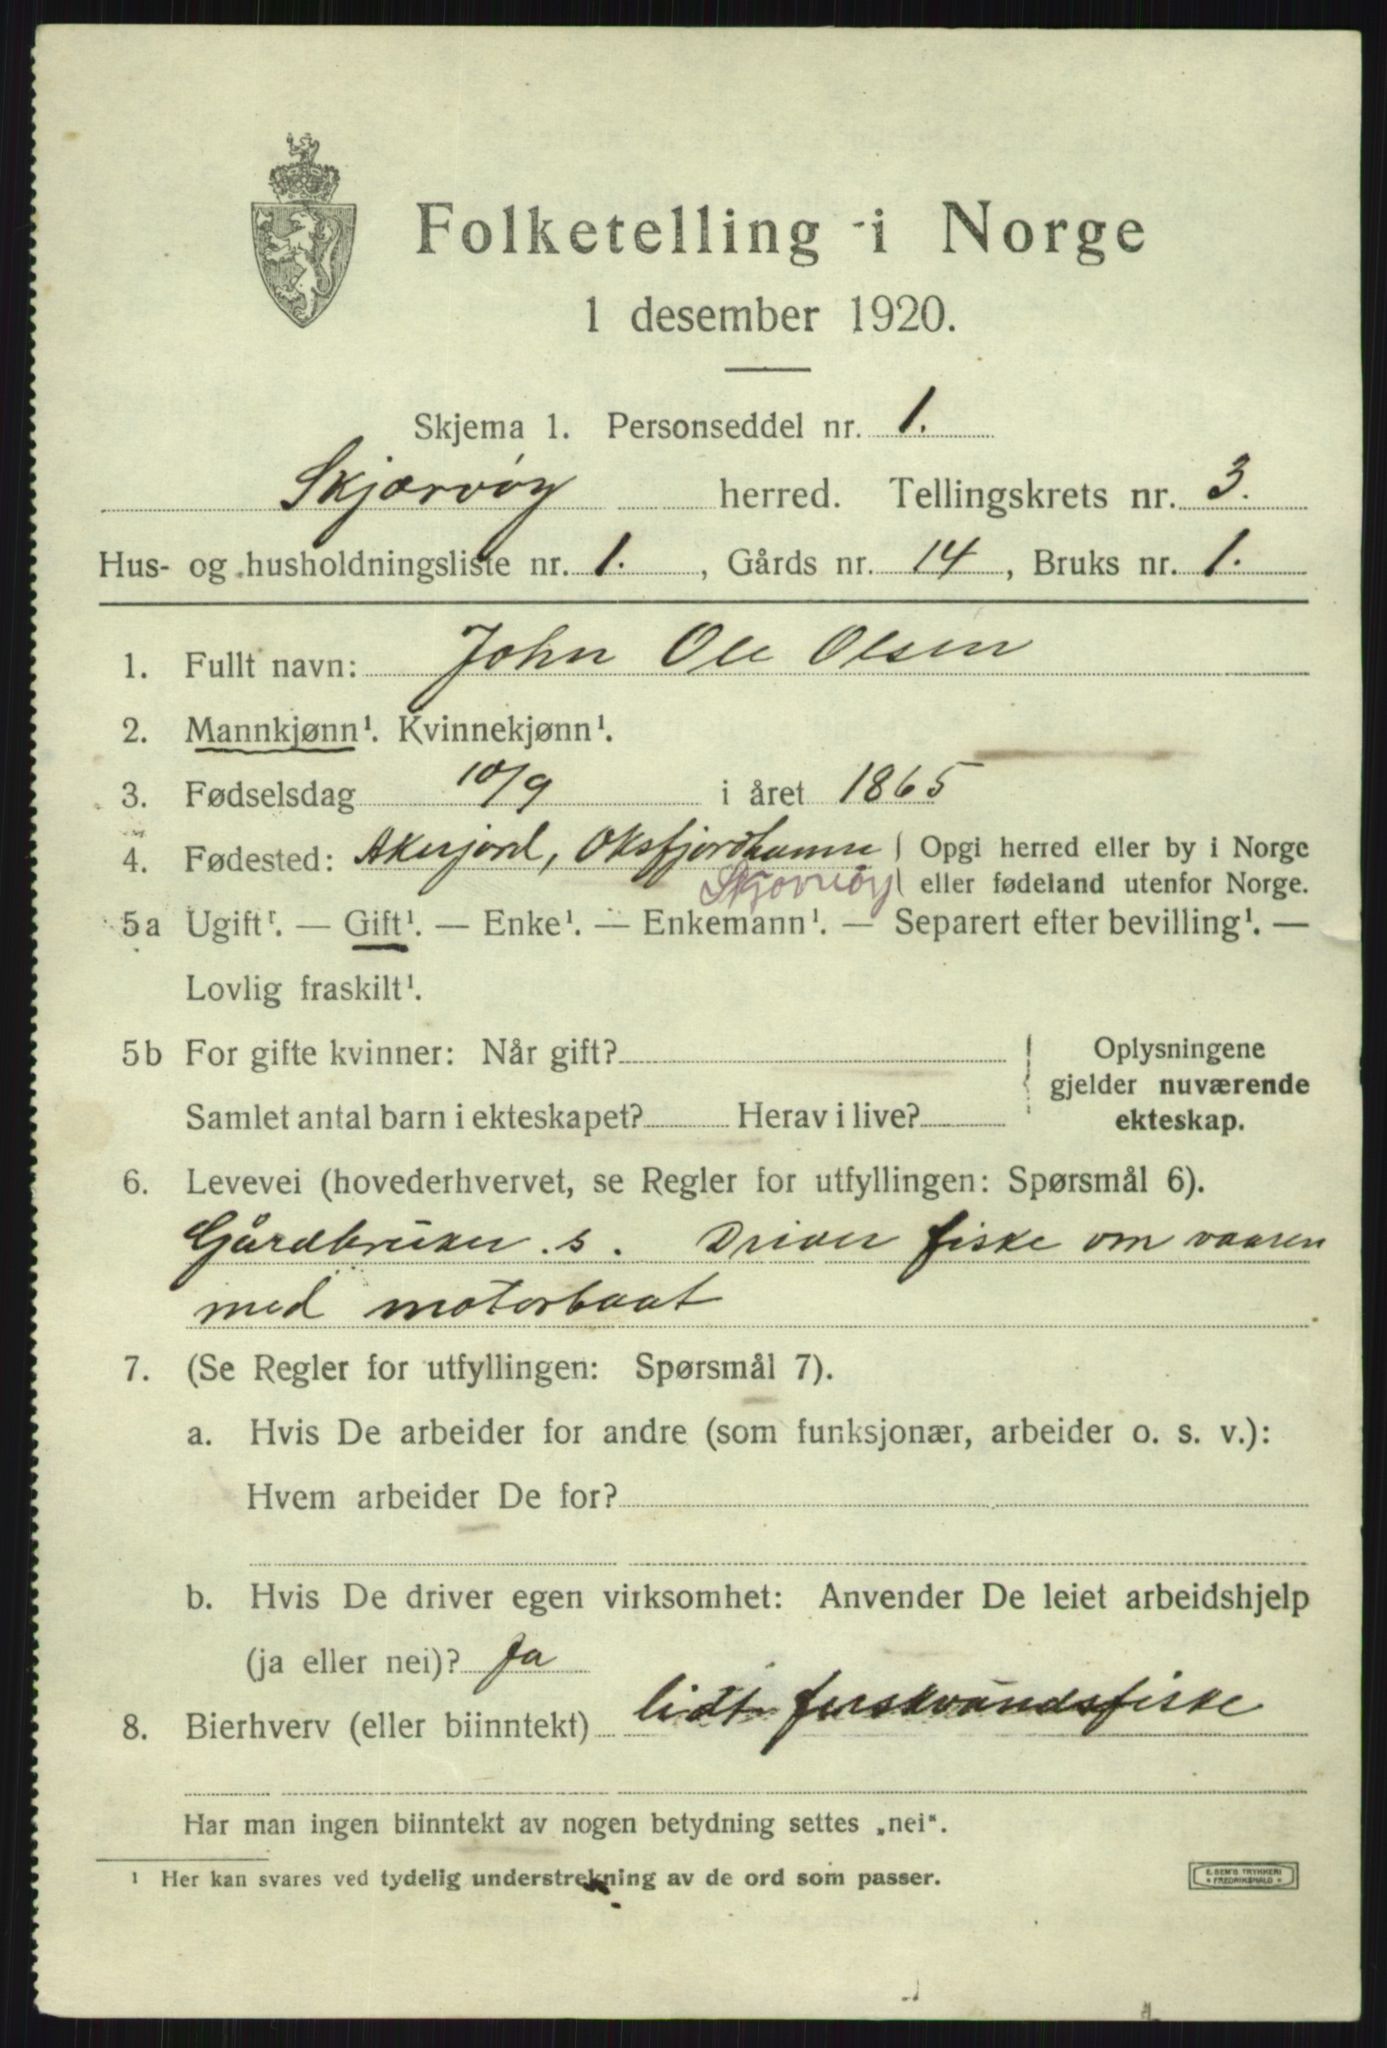 Folketelling i Norge
1 desember 1920.
Skjema 1. Personseddel nr. 1.
Skjærvøy herred. Tellingskrets nr. 3.
Hus- og husholdningsliste nr. 1., Gårds nr. 14, Bruks nr. 1.
1. Fullt navn: John Ole Olsen
2. Mannkjønn¹. Kvinnekjønn¹.
3. Fødselsdag 10/9 i året 1865
4. Fødested: Akerjord, Oksfjordhamn Opgi herred eller by i Norge
Skjervøy eller fødeland utenfor Norge.
5a Ugift¹. — Gift¹. — Enke¹. — Enkemann¹. — Separert efter bevilling¹. —
Lovlig fraskilt¹.
5b For gifte kvinner: Når gift? Oplysningene
gjelder nuværende
Samlet antal barn i ekteskapet? Herav i live? ekteskap.
6. Levevei (hovederhvervet, se Regler for utfyllingen: Spørsmål 6).
Gårdbruker. s. Driver fiske om vaaren
med motorbaat
7. (Se Regler for utfyllingen: Spørsmål 7).
a. Hvis De arbeider for andre (som funksjonær, arbeider o. s. v.):
Hvem arbeider De for?
b. Hvis De driver egen virksomhet: Anvender De leiet arbeidshjelp
(ja eller nei)? Ja
8. Bierhverv (eller biinntekt) lidt ferskvandsfiske
Har man ingen biinntekt av nogen betydning settes „nei“.
¹ Her kan svares ved tydelig understrekning av de ord som passer.
E. SEM'S TRYKKERI
* FREDRIKSHALD *